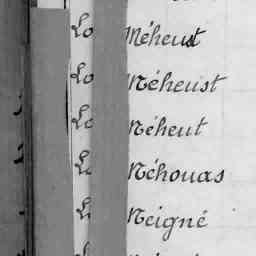 Lo Méheust
Lo Méheust
Lo Méheut
Le Méhouas
Le Meigné